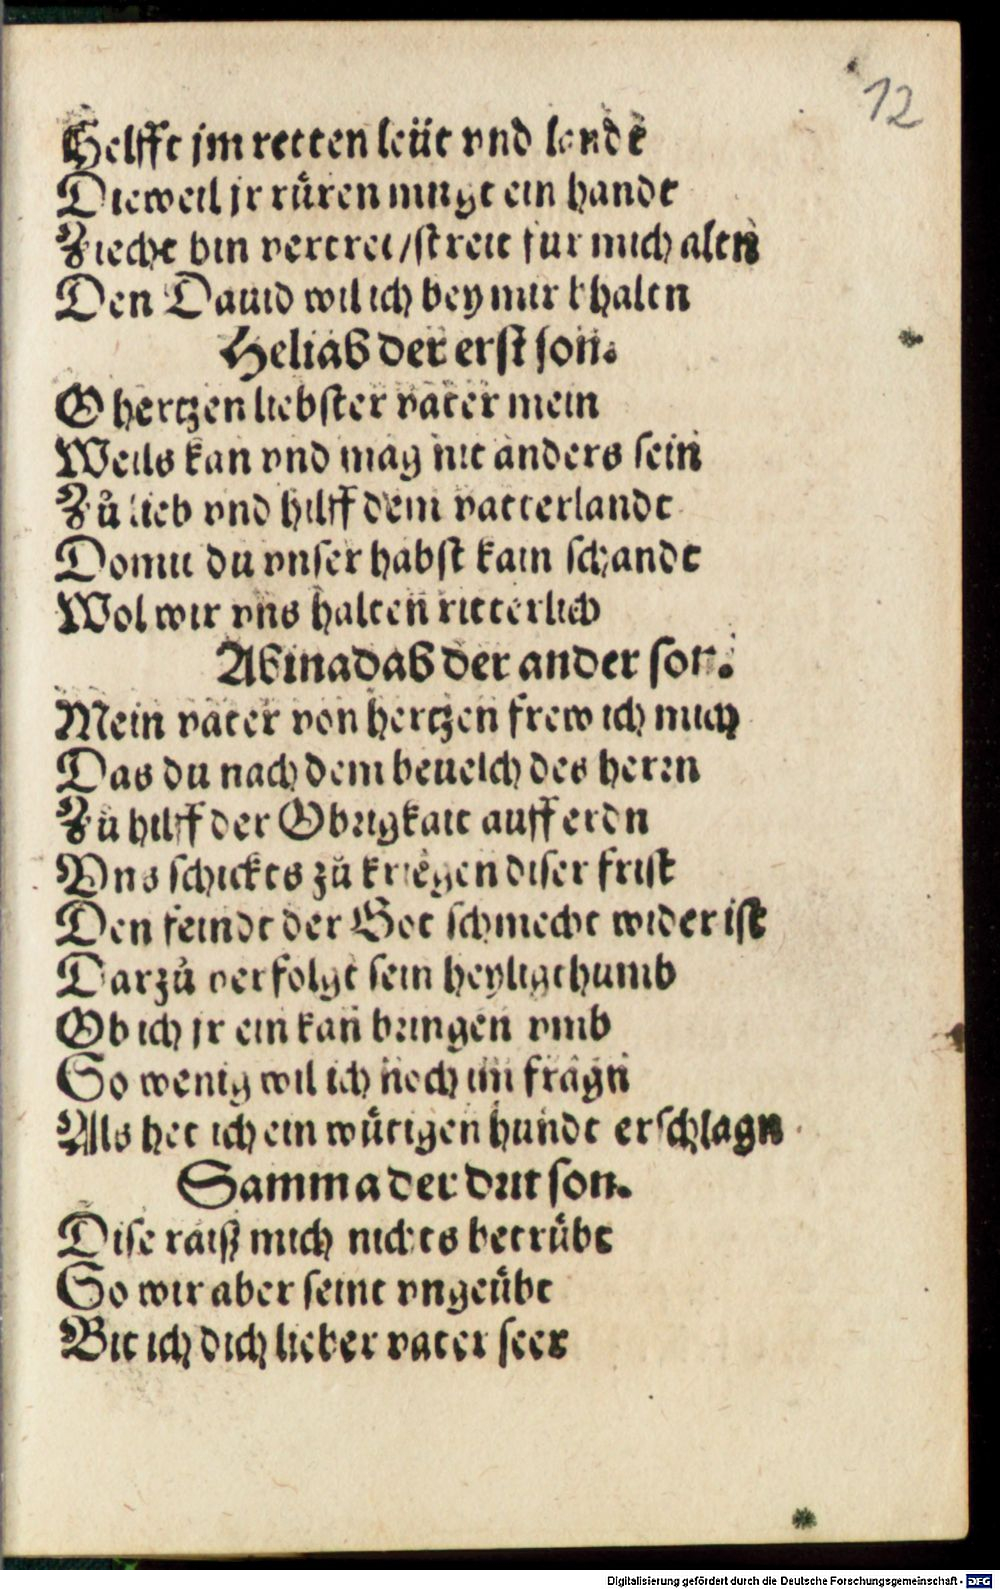 12
Helfft jm retten leüt vnd lande
Dieweil jr rüren mügt ein handt
Ziecht hin vertret/streit für mich altn
Den Dauid wil ich bey mir bhaltn
Heliab der erst son.
O hertzen liebster vater mein
Weils kan vnd mag nit anders sein
Zů lieb vnd hilff dem vatterlandt
Domit du vnser habst kain schandt
Wol wir vns halten ritterlich
Abinadab der ander son.
Mein vater von hertzen frew ich mich
Das du nach dem beuelch des herrn
Zů hilff der Obrigkait auff erdn
Vns schickts zů kriegen diser frist
Den feindt der Got schmecht wider ist
Darzů verfolgt sein heyligthumb
Ob ich jr ein kan bringen vmb
So wenig wil ich noch im fragn
Als het ich ein wütigen hundt erschlagn
Samma der drit son.
Dise raiß mich nichts betrübt
So wir aber seint vngeübt
Bit ich dich lieber vater seer
Digitalisierung gefördert durch die Deutsche Forschungsgemeinschaft - DFG